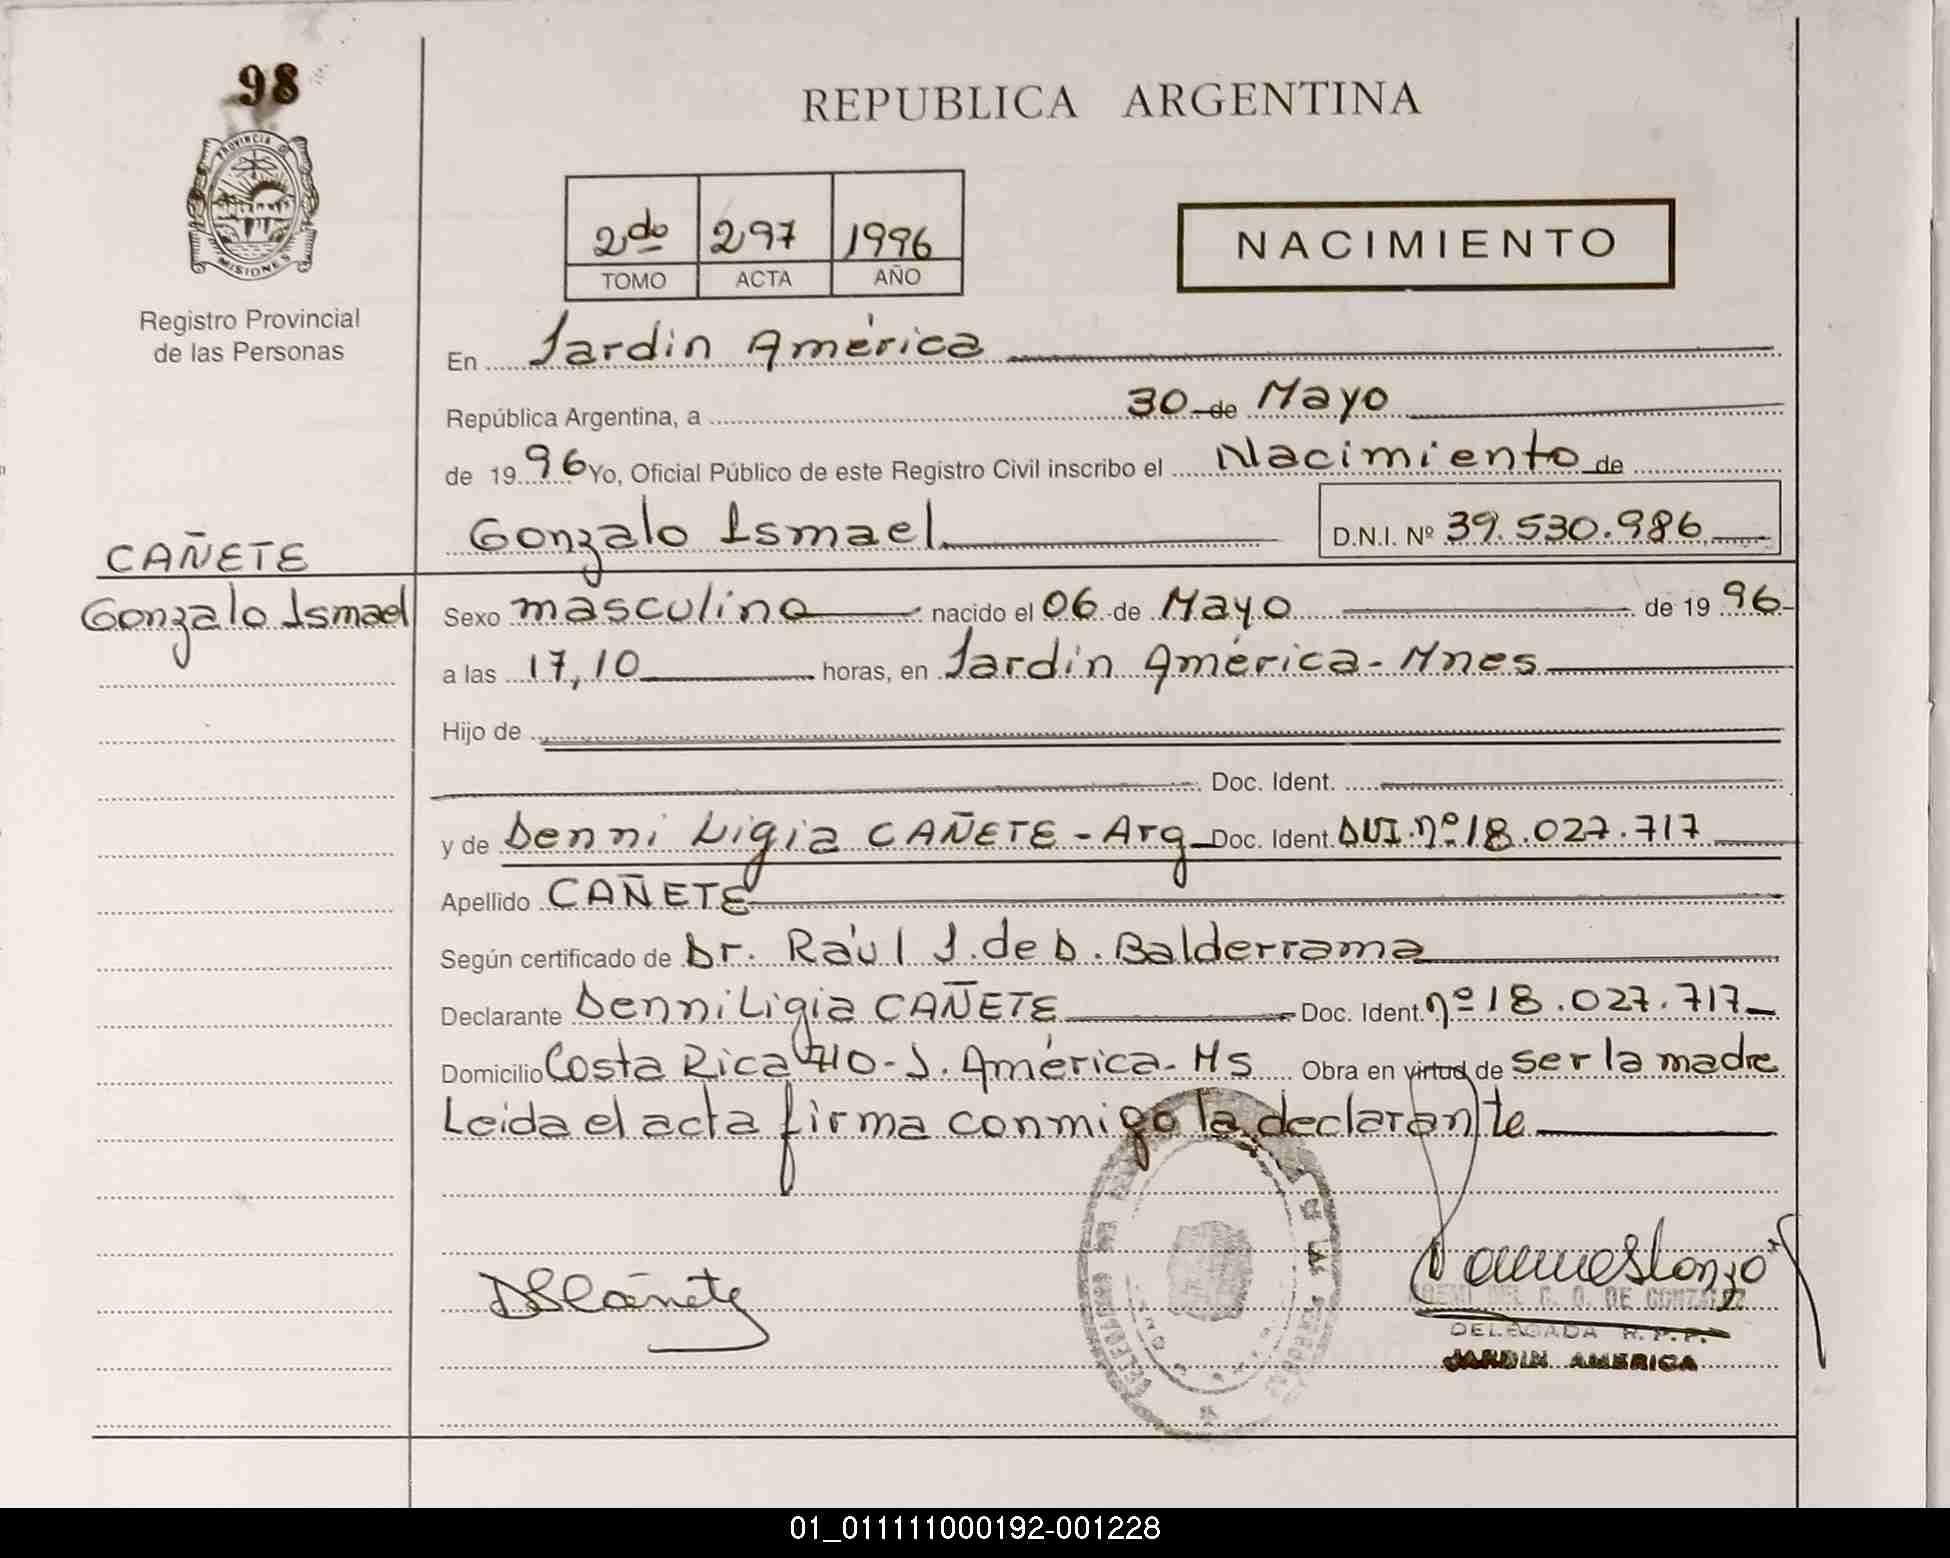 98
REPUBLICA ARGENTINA
PROVINCIA DE
MISIONES
2do 297 1996
TOMO ACTA AÑO
NACIMIENTO
Registro Provincial
de las Personas
En Jardín América
República Argentina, a 30 de Mayo
de 1996 Yo, Oficial Público de este Registro Civil inscribo el Nacimiento de
Gonzalo Ismael D.N.I. Nº 39.530.986
CAÑETE
Gonzalo Ismael
Sexo masculino nacido el 06 de Mayo de 1996
a las 17,10 horas, en Jardín América - Mnes
Hijo de
Doc. Ident.
y de Denni Ligia CAÑETE - Arg Doc. Ident. DUI. nº 18.027.717
Apellido CAÑETE
Según certificado de Dr. Raúl J. de D. Balderrama
Declarante Denni Ligia CAÑETE Doc. Ident. nº 18.027.717
Domicilio Costa Rica 710 - J. América - Ms Obra en virtud de ser la madre
Leída el acta firma conmigo la declarante
DLCañete
DE GONZALEZ
DELEGADA R.P.P.
JARDIN AMERICA
01_011111000192-001228